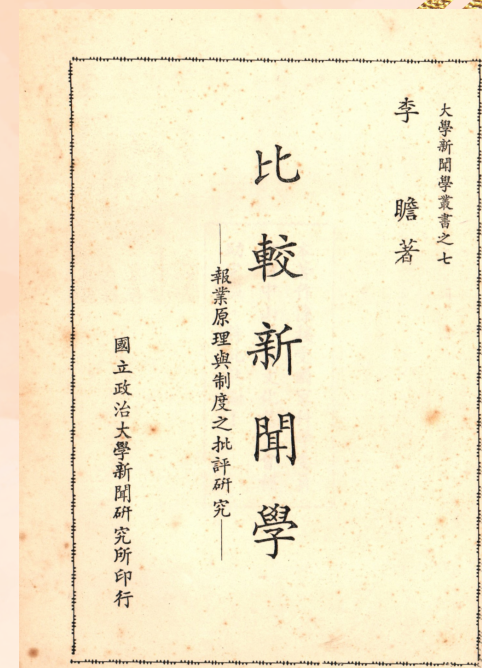 大學新聞學叢書之七
李瞻著
比較新聞學
——報業原理與制度之批評研究——
國立政治大學新聞研究所印行